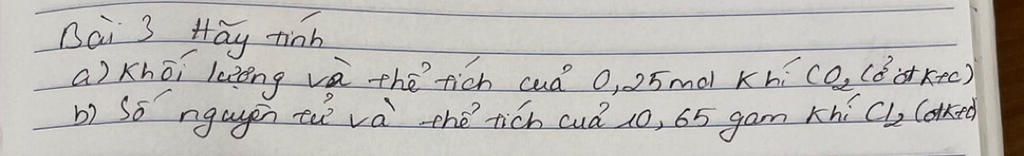 Bài 3 Hãy tính
a) Khối lượng và thể tích cuả 0,25mol Khí CO2 (ở đtKtc)
b) Số nguyên tử và thể tích cuả 10,65 gam Khí Cl2 (đtKtc)